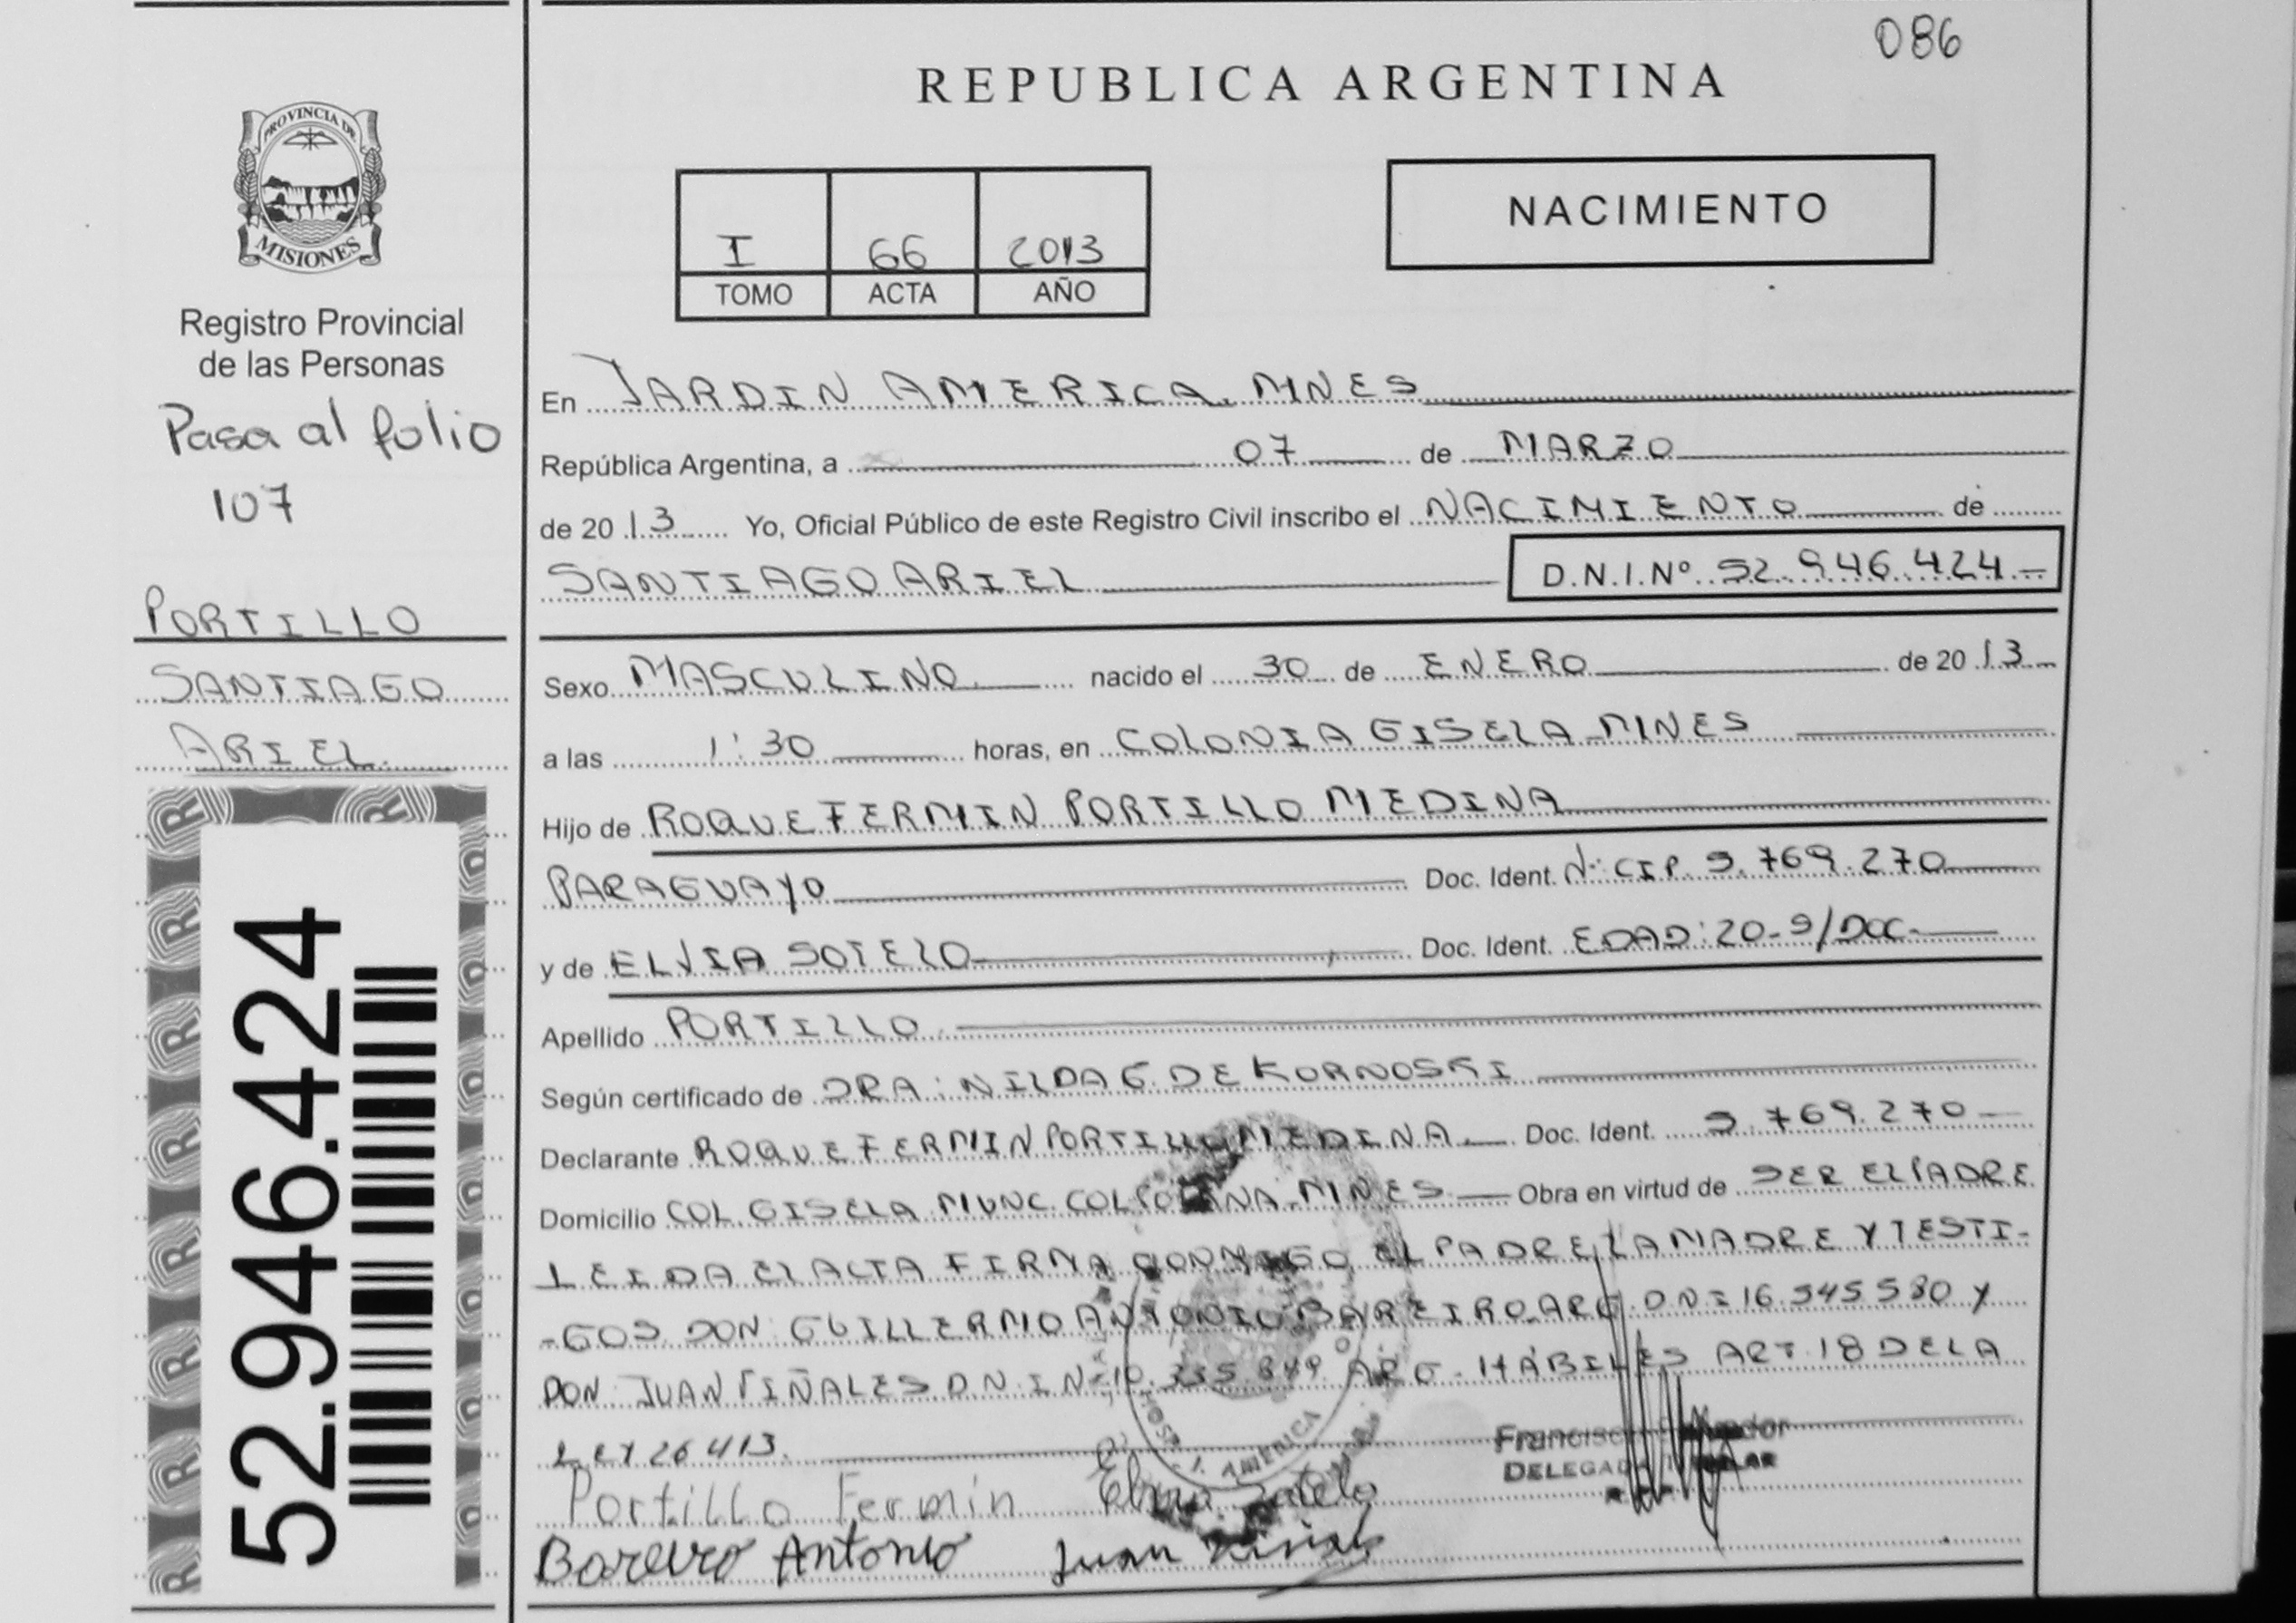 086
REPUBLICA ARGENTINA
PROVINCIA DE
MISIONES
Registro Provincial
de las Personas
Pasa al folio
107
PORTILLO
SANTIAGO
ARIEL
52.946.424
I 66 2013
TOMO ACTA AÑO
NACIMIENTO
En JARDIN AMERICA. MNES
República Argentina, a 07 de MARZO
de 2013 Yo, Oficial Público de este Registro Civil inscribo el NACIMIENTO de
SANTIAGO ARIEL D.N.I.Nº 52.946.424
Sexo MASCULINO nacido el 30 de ENERO de 2013
a las 1:30 horas, en COLONIA GISELA MNES
Hijo de ROQUE FERMIN PORTILLO MEDINA
PARAGUAYO Doc. Ident. Nº: CIP. 5.769.270
y de ELVIA SOTELO Doc. Ident. EDAD: 20-S/DOC-
Apellido PORTILLO
Según certificado de DRA: NILDA G. DE KORNOSKI
Declarante ROQUE FERMIN PORTILLO MEDINA. Doc. Ident. 5.769.270
Domicilio COL. GISELA MUNC. COL. MNES Obra en virtud de SER EL PADRE
LEIDA EL ACTA FIRMA CONMIGO EL PADRE, LA MADRE Y TESTI-
-GOS DON: GUILLERMO ANTONIO BAREIRO ARG. DNI 16.545.580 Y
DON: JUAN D.N.I.Nº 10.335.849 ARG. HÁBILES ART. 18 DE LA
LEY 26413.
Francisco
DELEGADA
Portillo Fermin Sotelo
Bareiro Antonio Juan
AMERICA